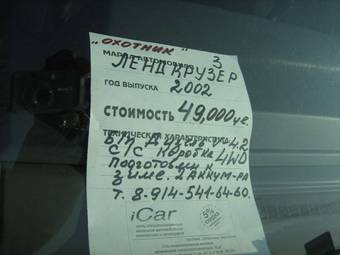 "ОХОТНИК"
МАРКА АВТОМОБИЛЯ 3
ЛЕНДКРУЗЕР
ГОД ВЫПУСКА 2002
СТОИМОСТЬ 49,000 у.е.
ТЕХНИЧЕСКАЯ ХАРАКТЕРИСТИКА
Б/П ДИЗЕЛЬ 4.2
С/С КОРОБКА 4WD
ПОДГОТОВЛЕН К
ЗИМЕ. 2 АККУМ-РА
Т. 8-914-541-64-60.
iCar
5%